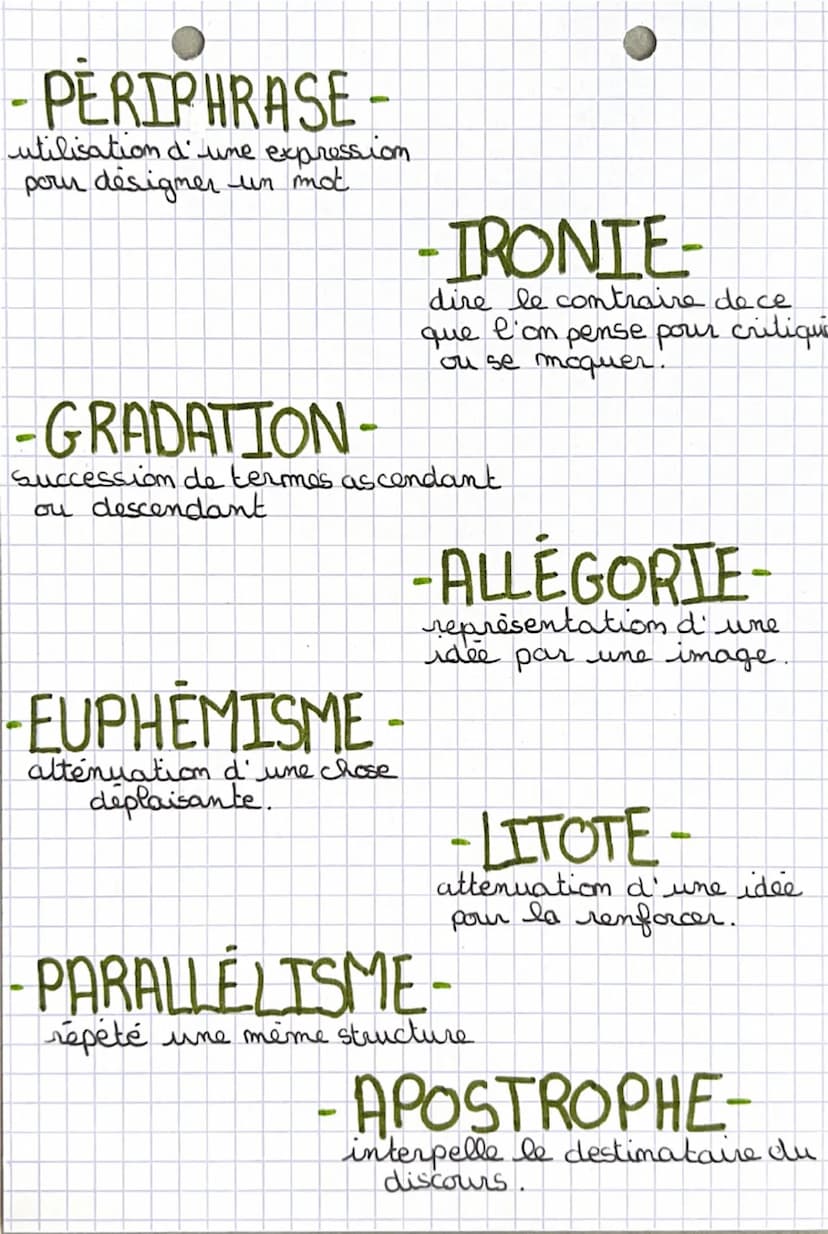 - PÉRIPHRASE -
utilisation d'une expression
pour désigner un mot
- IRONIE -
dire le contraire de ce
que l'on pense pour critiqu
ou se moquer.
- GRADATION -
succession de termes ascendant
ou descendant
- ALLÉGORIE -
représentation d'une
idée par une image.
- EUPHÉMISME -
atténuation d'une chose
déplaisante.
- LITOTE -
atténuation d'une idée
pour la renforcer.
- PARALLÉLISME -
répété une même structure
- APOSTROPHE -
interpelle le destinataire du
discours.